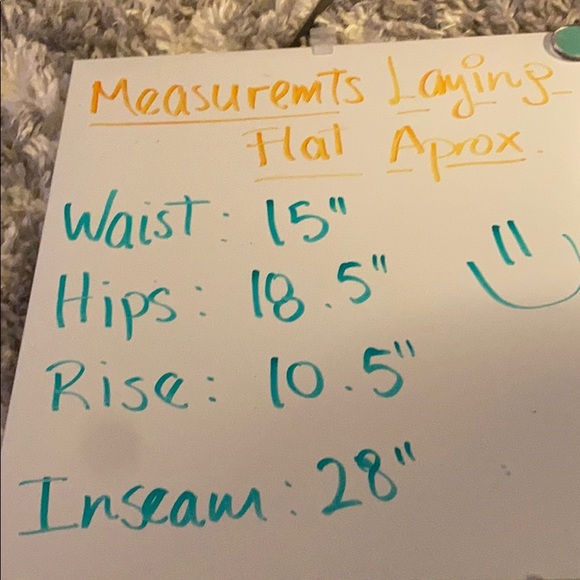 Measuremts Laying
Flat Aprox.
Waist: 15"
Hips: 18.5"
Rise: 10.5"
Inseam: 28"